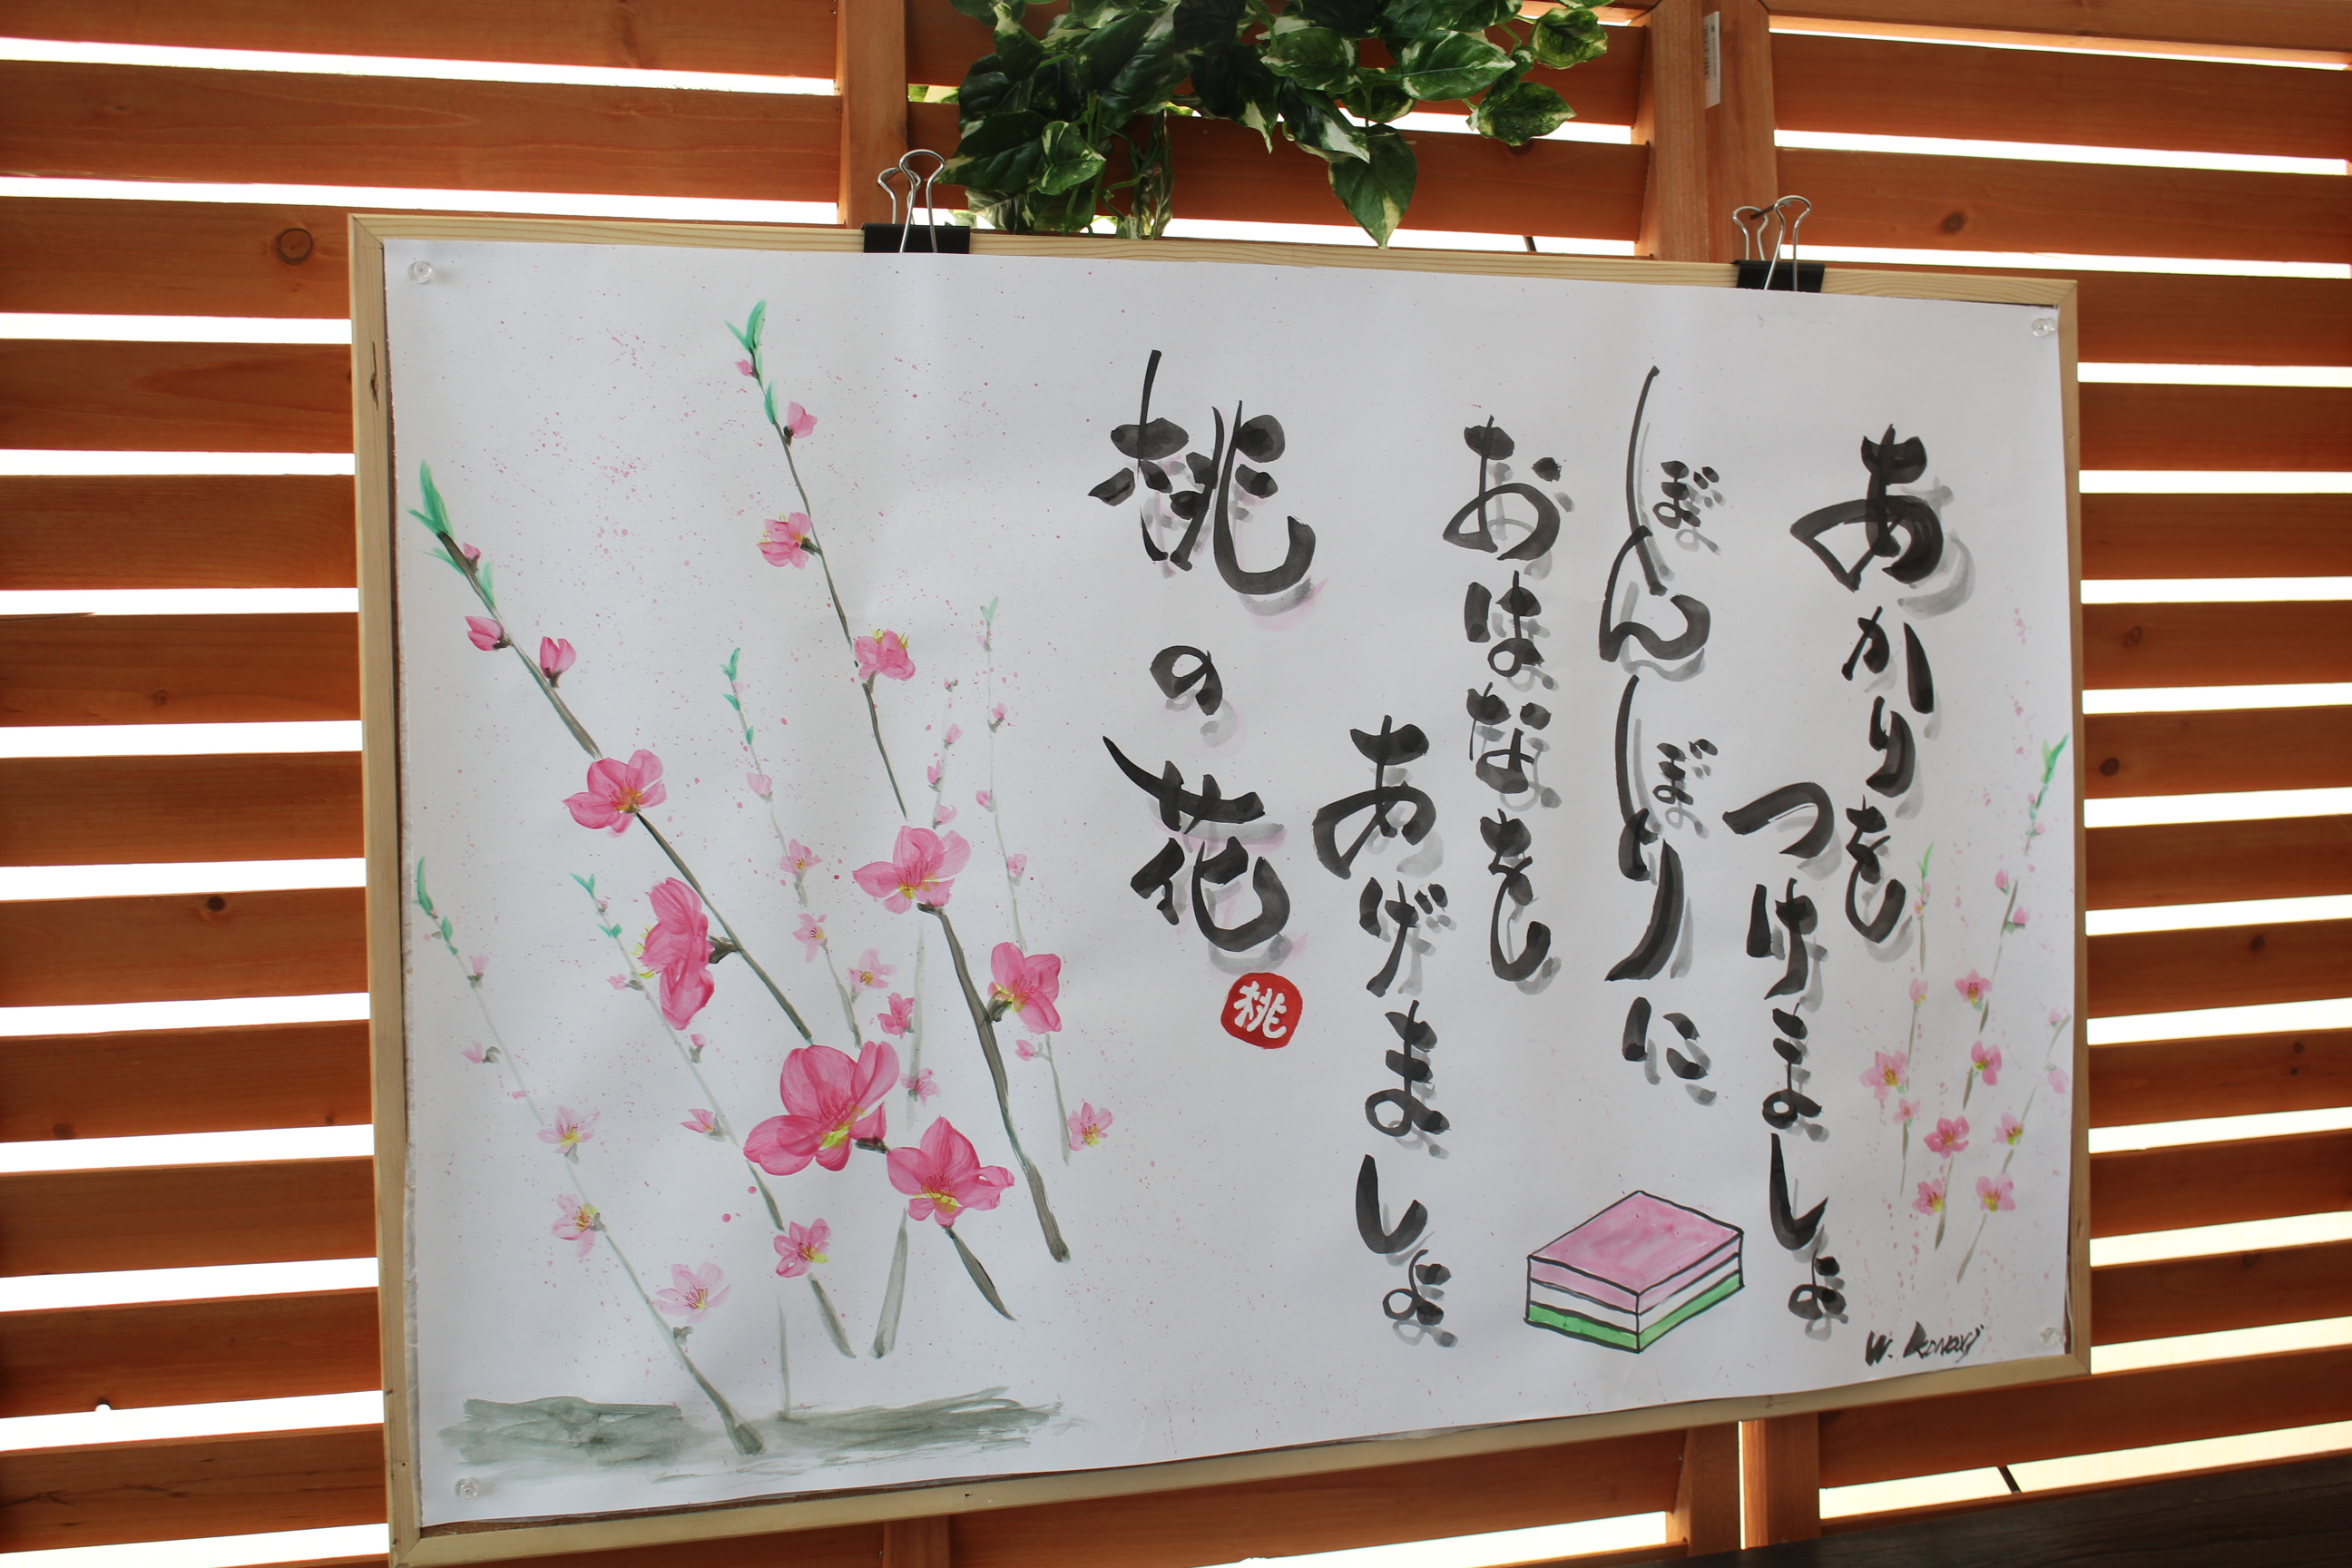 あかりを
つけましょ
ぼんぼりに
おはなを
あげましょ
桃の花
桃